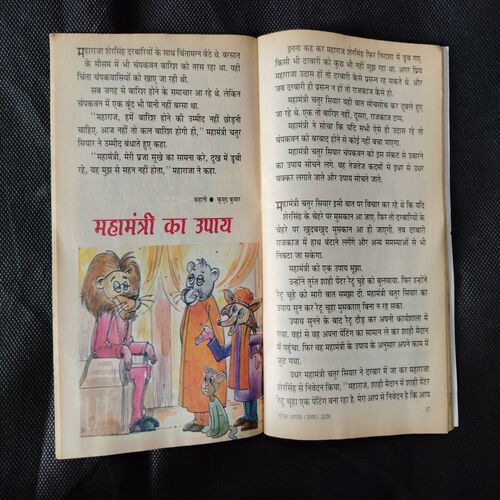 महाराजा शेरसिंह दरबारियों के साथ चिंतामग्न बैठे थे. बरसात
के मौसम में भी चंपकवन बारिश को तरस रहा था. यही
चिंता चंपकवासियों को खाए जा रही थी.
सब जगह से बारिश होने के समाचार आ रहे थे. लेकिन
चंपकवन में एक बूंद भी पानी नहीं बरसा था.
"महाराज, हमें बारिश होने की उम्मीद नहीं छोड़नी
चाहिए. आज नहीं तो कल बारिश होगी ही," महामंत्री चतुर
सियार ने उम्मीद बंधाते हुए कहा.
"महामंत्री, मेरी प्रजा सूखे का सामना करे, दुख में डूबी
रहे, यह मुझ से सहन नहीं होता," महाराजा ने कहा.
कहानी • कुमुद कुमार
महामंत्री का उपाय
इतना कह कर महाराजा शेरसिंह फिर निराशा में डूब गए.
किसी भी दरबारी को कुछ भी नहीं सूझ रहा था. अगर प्रिय
महाराजा उदास हों तो दरबारी कैसे प्रसन्न रह सकते थे. और
जब दरबारी ही प्रसन्न न हों तो राजकाज कैसे हो.
महामंत्री चतुर सियार यही बात सोचसोच कर दुबले हुए
जा रहे थे. एक तो बारिश नहीं, दूसरा, राजकाज ठप्प.
महामंत्री ने सोचा कि यदि सभी ऐसे ही उदास रहे तो
चंपकवन को बरबाद होने से कोई नहीं बचा पाएगा.
महामंत्री चतुर सियार चंपकवन को इस संकट से उबारने
का उपाय सोचने लगे. वह तेजतेज कदमों से इधर से उधर
चक्कर लगाते और उपाय सोचते जाते.
महामंत्री चतुर सियार इसी बात पर विचार कर रहे थे कि यदि
शेरसिंह के चेहरे पर मुसकान आ जाए. फिर तो दरबारियों के
चेहरे पर खुदबखुद मुसकान आ ही जाएगी. तब दरबारी
राजकाज में हाथ बंटाने लगेंगे और अन्य समस्याओं से भी
निबटा जा सकेगा.
महामंत्री को एक उपाय सूझा.
उन्होंने तुरंत शाही पेंटर रेटू चूहे को बुलवाया. फिर उन्होंने
रेटू चूहे को सारी बात समझा दी. महामंत्री चतुर सियार का
उपाय सुन कर रेटू चूहा मुसकराए बिना न रह सका.
उपाय सुनने के बाद रेटू दौड़ कर अपनी कार्यशाला में
गया. वहां से वह अपना पेंटिंग का सामान ले कर शाही मैदान
में पहुंचा. फिर वह महामंत्री के उपाय के अनुसार अपने काम में
जुट गया.
उधर महामंत्री चतुर सियार ने दरबार में जा कर महाराजा
शेरसिंह से निवेदन किया, "महाराज, शाही मैदान में शाही पेंटर
रेटू चूहा एक पेंटिंग बना रहा है. मेरा आप से निवेदन है कि आप
अगस्त (प्रथम) 2009
37